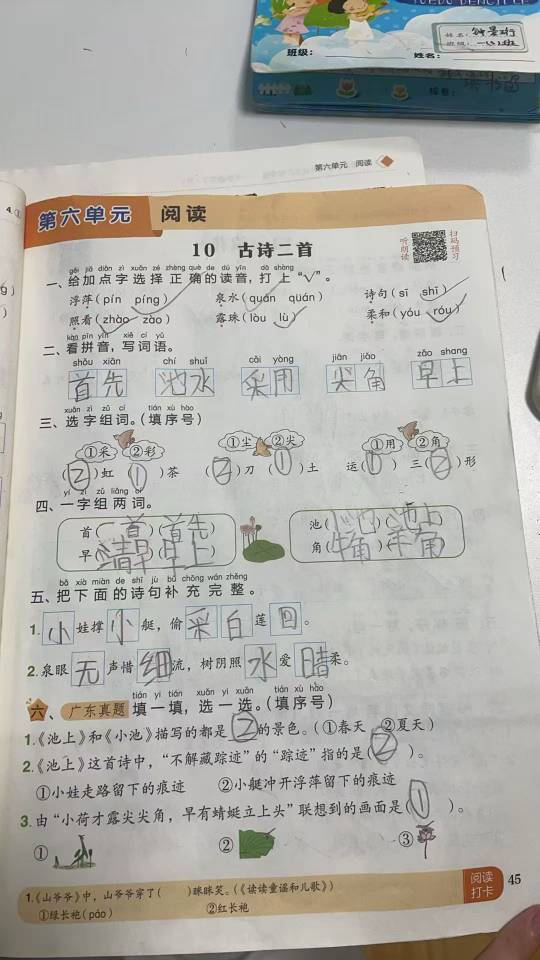 姓名：
班级：一(3)班
班级：
姓名：
第六单元 阅读
第六单元 阅读
听朗读
扫码预习
10 古诗二首
gěi jiā diǎn zì xuǎn zé zhèng què de dú yīn dǎ shàng
一、给加点字选择正确的读音，打上“√”。
浮萍(pín píng) 泉水(quán quán) 诗句(sī shī)
照看(zhào zào) 露珠(lòu lù) 柔和(yóu róu)
kàn pīn yīn xiě cí yǔ
二、看拼音，写词语。
shǒu xiān chí shuǐ cǎi yòng jiān jiǎo zǎo shang
首先 池水 采用 尖角 早上
xuǎn zì zǔ cí tián xù hào
三、选字组词。(填序号)
①采 ②彩 ①尘 ②尖 ①用 ②角
(2)虹 (1)茶 (2)刀 (1)土 运(1) 三(2)形
yí zì zǔ liǎng cí
四、一字组两词。
首(一首)(首先) 池( )(池上)
早(清早)(早上) 角(牛角)(羊角)
bǎ xià miàn de shī jù bǔ chōng wán zhěng
五、把下面的诗句补充完整。
1.小娃撑小艇，偷采白莲回。
2.泉眼无声惜细流，树阴照水爱晴柔。
tián yi tián xuǎn yi xuǎn tián xù hào
六、广东真题 填一填，选一选。(填序号)
1.《池上》和《小池》描写的都是(2)的景色。(①春天 ②夏天)
2.《池上》这首诗中，“不解藏踪迹”的“踪迹”指的是(2)。
①小娃走路留下的痕迹 ②小艇冲开浮萍留下的痕迹
3.由“小荷才露尖尖角，早有蜻蜓立上头”联想到的画面是(1)。
① ② ③
1.《山爷爷》中，山爷爷穿了( )眯眯笑。(《读读童谣和儿歌》)
①绿长袍(páo) ②红长袍
阅读打卡
45